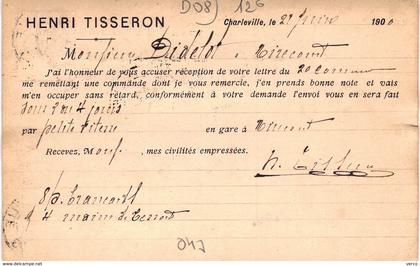 D08) 126
HENRI TISSERON
Charleville, le 21 190
Monsieur Didelot à Mirecourt
J'ai l'honneur de vous accuser réception de votre lettre du 20 courant
me remettant une commande dont je vous remercie, j'en prends bonne note et vais
m'en occuper sans retard, conformément à votre demande l'envoi vous en sera fait
sous 3 ou 4 jours
par petite vitesse en gare à Mirecourt
Recevez, Monsi , mes civilités empressées.
H. Tisseron
4
delcampe.net